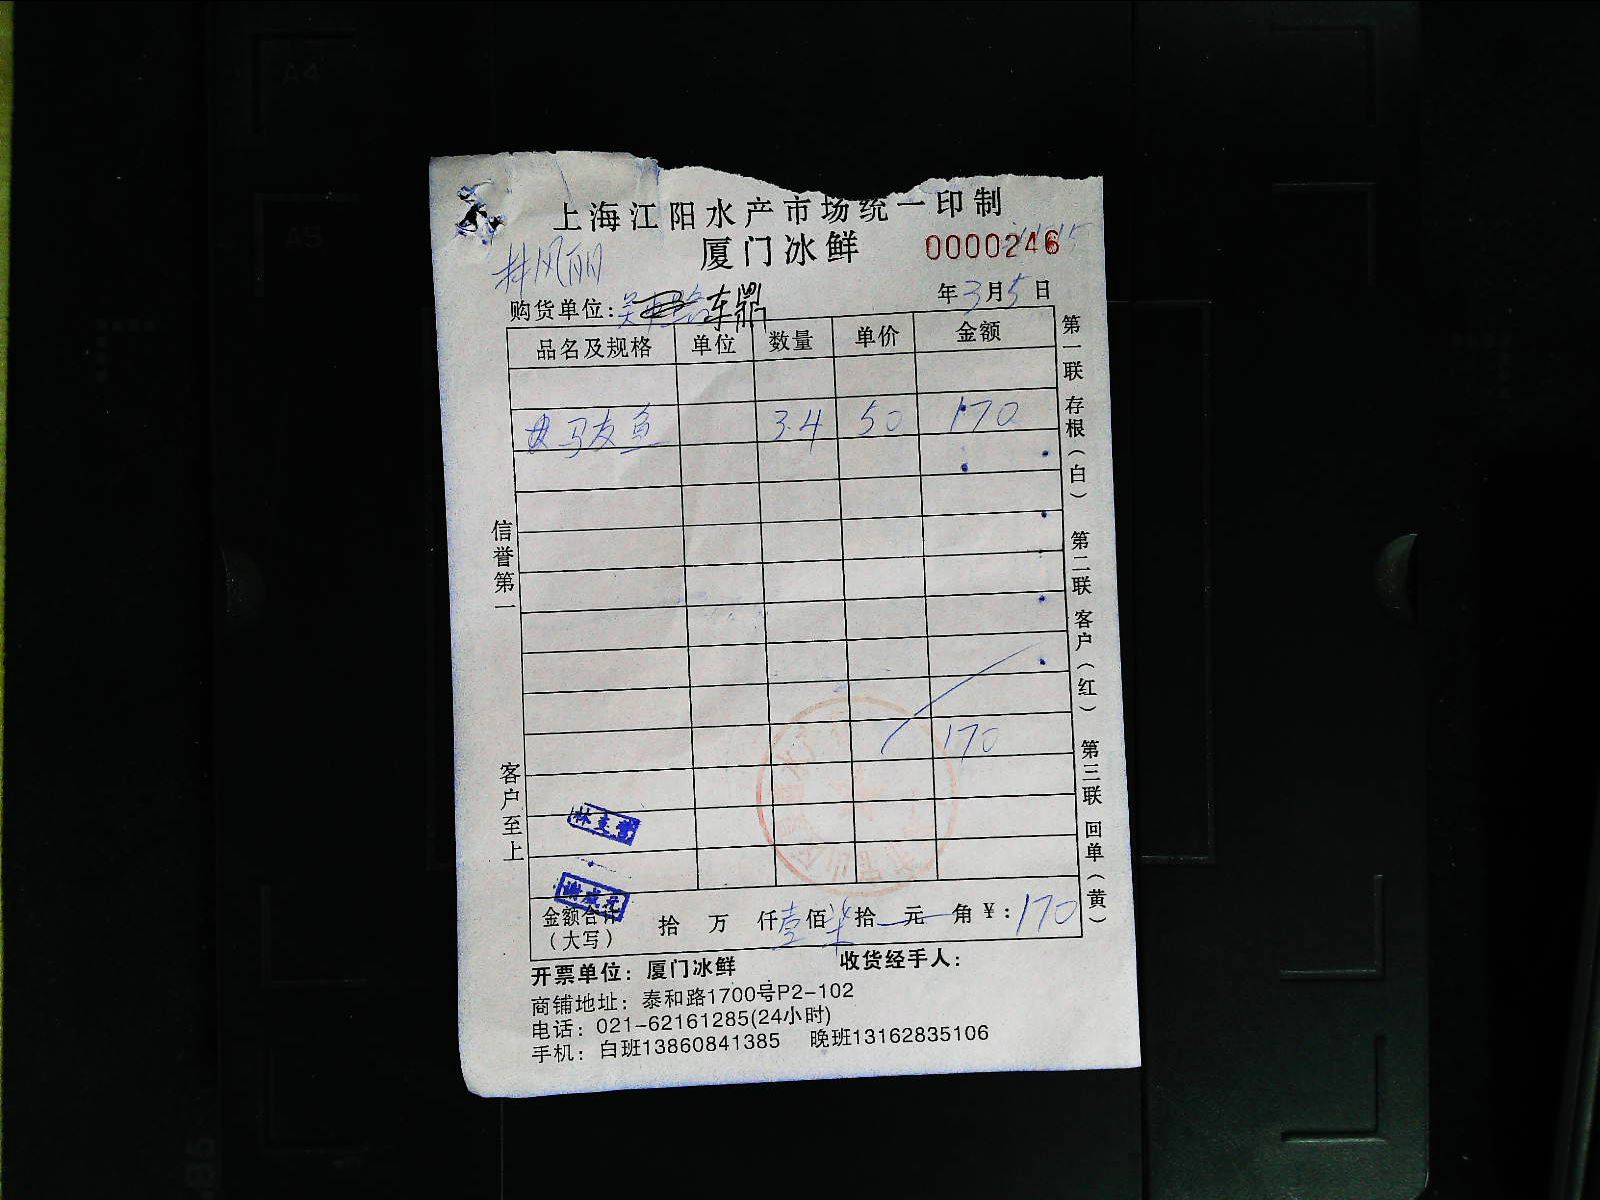 上海江阳水产市场统一印制
厦门冰鲜 0000246
林凤丽
年3月5日
购货单位: 东鼎
品名及规格 单位 数量 单价 金额
马友鱼 3.4 50 170
170
金额合计
（大写） 拾 万 仟壹佰柒拾 元 角 ￥: 170
开票单位: 厦门冰鲜 收货经手人:
商铺地址: 泰和路1700号P2-102
电话: 021-62161285(24小时)
手机: 白班13860841385 晚班13162835106
信誉第一
客户至上
第一联 存根（白） 第二联 客户（红） 第三联 回单（黄）
A4
A5